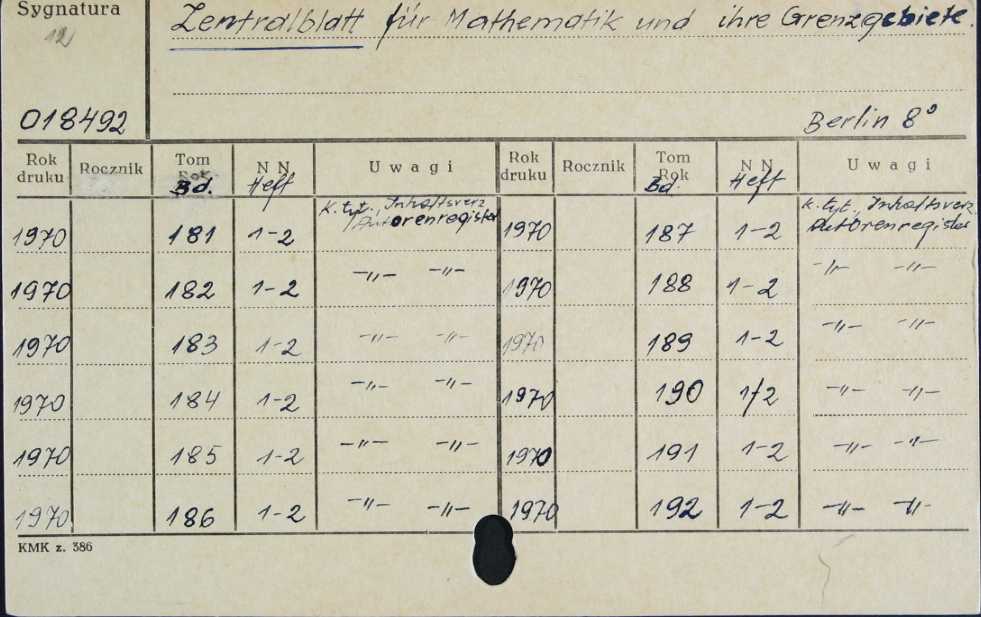 Sygnatura
12
Zentralblatt für Mathematik und ihre Grenzgebiete.
018492
Berlin 8°
Rok druku Rocznik Tom Rok Bd. N N Heft Uwagi Rok druku Rocznik Tom Rok Bd. N N Heft Uwagi
1970 181 1-2 k. tyt., Inhaltsverz. Autorenregister 1970 187 1-2 k. tyt., Inhaltsverz. Autorenregister
1970 182 1-2 -"- -"- 1970 188 1-2 -"- -"-
1970 183 1-2 -"- -"- 1970 189 1-2 -"- -"-
1970 184 1-2 -"- -"- 1970 190 1/2 -"- -"-
1970 185 1-2 -"- -"- 1970 191 1-2 -"- -"-
1970 186 1-2 -"- -"- 1970 192 1-2 -"- -"-
KMK z. 386